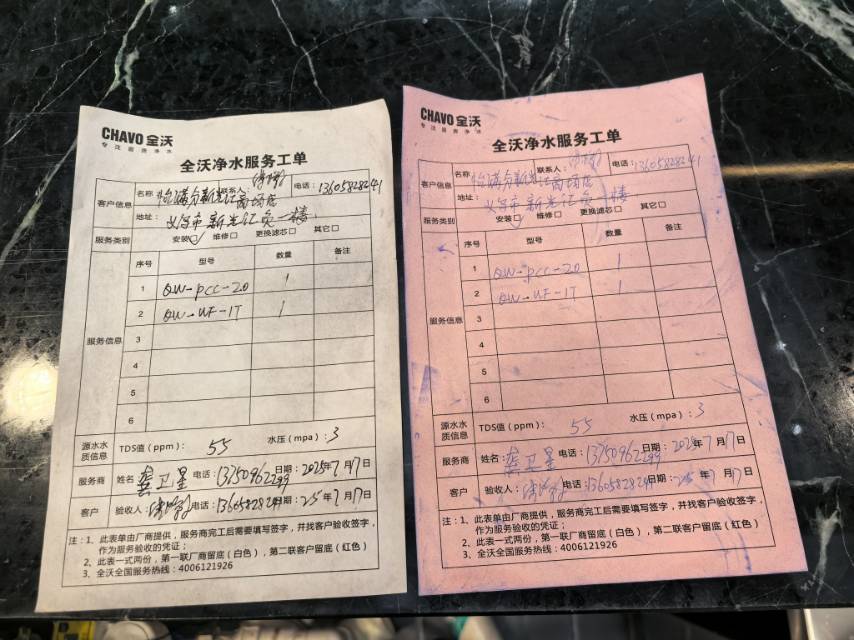 CHAVO 全沃
专注厨房净水
全沃净水服务工单
客户信息
名称: 怡满分新光汇商场店 联系人: 电话: 13605828241
地址: 义乌市新光汇负一楼
服务类别 安装☑ 维修□ 更换滤芯□ 其它□
服务信息
序号 型号 数量 备注
1 QW-PCC-20 1
2 QW-UF-1T 1
3
4
5
6
源水水质信息 TDS值(ppm): 55 水压(mpa): 3
服务商 姓名: 龚卫星 电话: 13750962299 日期: 2025年7月17日
客户 验收人: 电话: 13605828241 日期: 25年7月17日
注: 1、此表单由厂商提供,服务商完工后需要填写签字,并找客户验收签字,
作为服务验收的凭证;
2、此表一式两份,第一联厂商留底(白色),第二联客户留底(红色)
3、全沃全国服务热线: 4006121926
CHAVO 全沃
专注厨房净水
全沃净水服务工单
客户信息
名称: 怡满分新光汇商场店 联系人: 电话: 13605828241
地址: 义乌市新光汇负一楼
服务类别 安装□ 维修□ 更换滤芯□ 其它□
服务信息
序号 型号 数量 备注
1 QW-PCC-20 1
2 QW-UF-1T 1
3
4
5
6
源水水质信息 TDS值(ppm): 55 水压(mpa): 3
服务商 姓名: 龚卫星 电话: 13750962299 日期: 2025年7月17日
客户 验收人: 电话: 13605828241 日期: 25年7月17日
注: 1、此表单由厂商提供,服务商完工后需要填写签字,并找客户验收签字,
作为服务验收的凭证;
2、此表一式两份,第一联厂商留底(白色),第二联客户留底(红色)
3、全沃全国服务热线: 4006121926